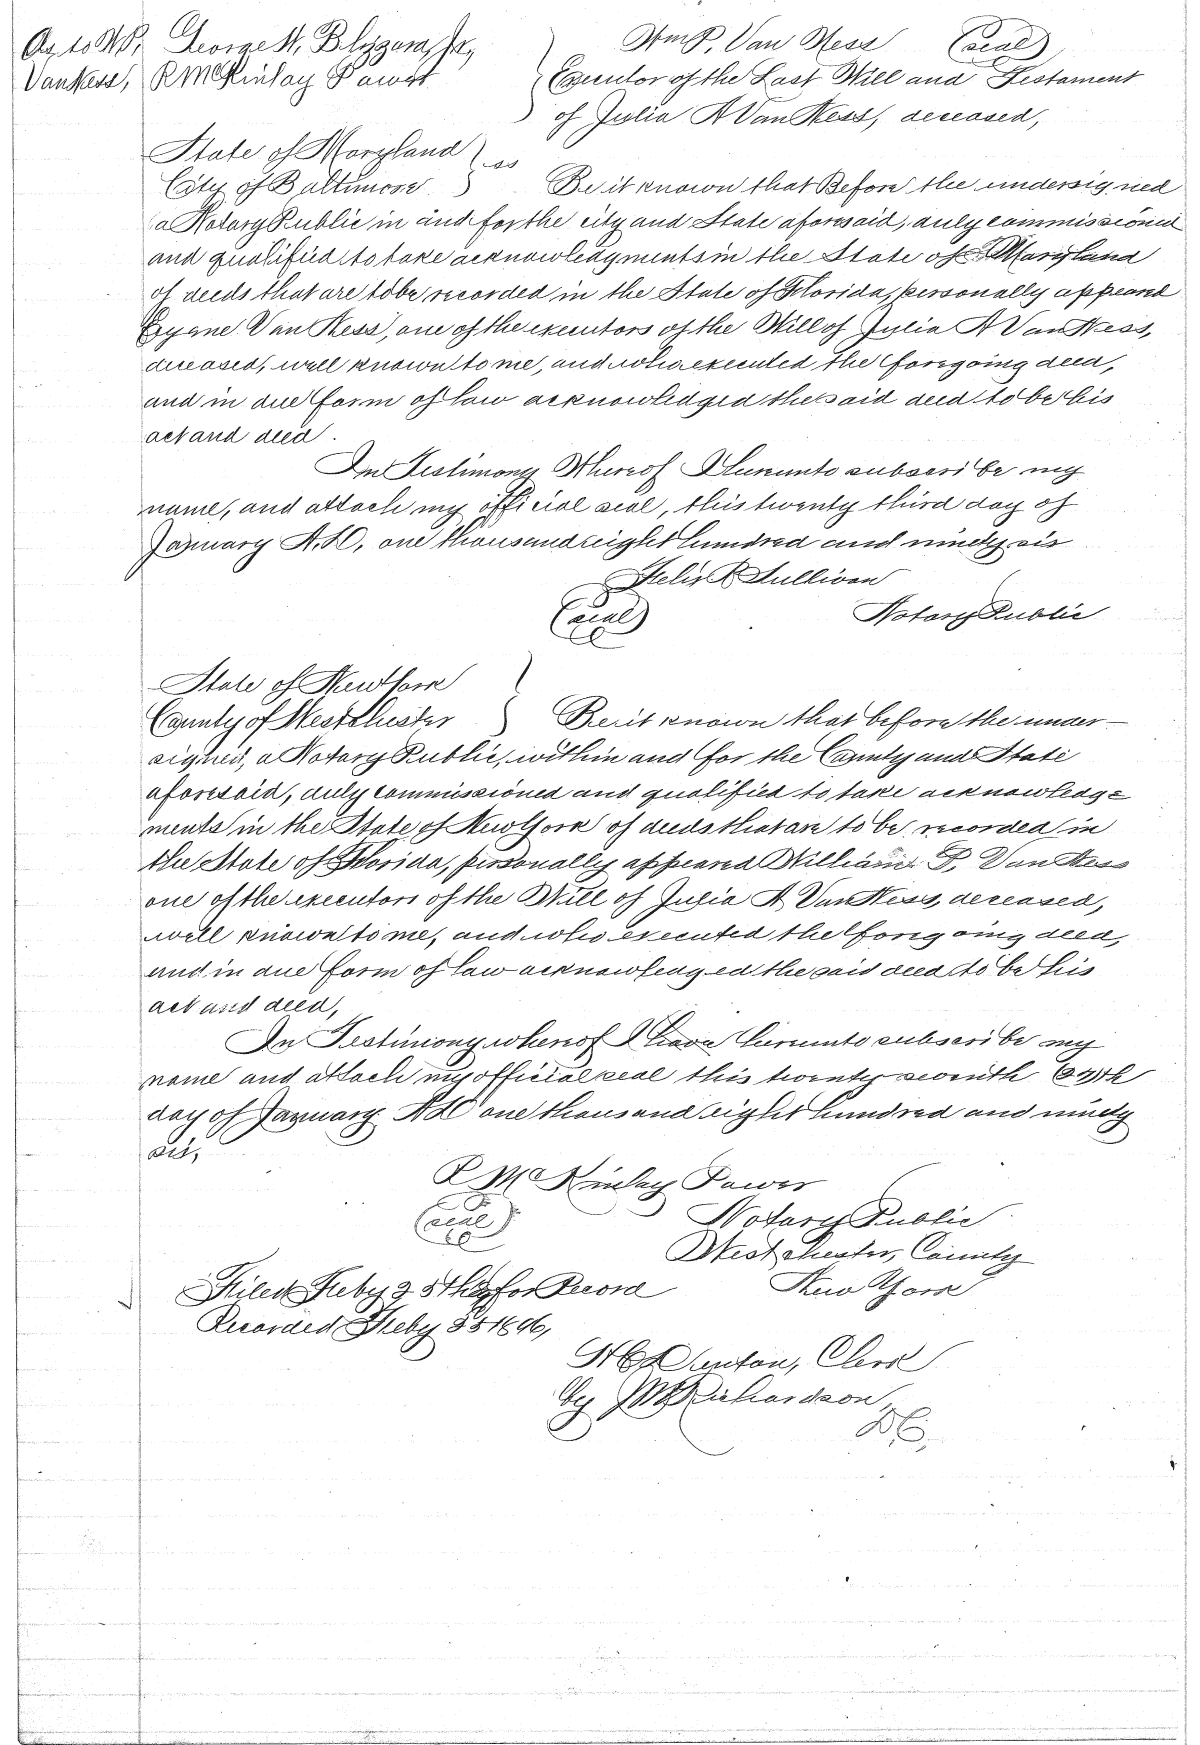 As to W.P. George W. Blizzard, Jr, Wm P. Van Ness (seal)
Van Ness, R McKinlay Power Executor of the Last Will and Testament
of Julia A Van Ness, deceased,
State of Maryland ) ss
City of Baltimore ) Be it known that Before the undersigned
a Notary Public in and for the city and State aforesaid, duly commissioned
and qualified to take acknowledgments in the State of Maryland
of deeds that are to be recorded in the State of Florida, personally appeard
Eugene Van Ness, one of the executors of the Will of Julia A Van Ness,
deceased, well known to me, and who executed the foregoing deed,
and in due form of law acknowledged the said deed to be his
act and deed.
In Testimony Whereof I hereunto subscribe my
name, and attach my official seal, this twenty third day of
January A.D. one thousand eight hundred and ninety six
Felix R Sullivan
(seal) Notary Public
State of New York )
County of Westchester ) Be it known that before the under-
signed, a Notary Public, within and for the County and State
aforesaid, duly commissioned and qualified to take acknowledg=
ments in the State of New York of deeds that are to be recorded in
the State of Florida, personally appeared William P. Van Ness
one of the executors of the Will of Julia A Van Ness, deceased,
well known to me, and who executed the foregoing deed,
and in due form of law acknowledged the said deed to be his
act and deed,
In Testimony whereof I have hereunto subscribe my
name and attach my official seal this twenty seventh
day of January AD one thousand eight hundred and ninety
six,
R McKinlay Power
(seal) Notary Public
Westchester, County
Filed Feby 25th for Record New York
Recorded Feby 1896,
Clerk
by Richardson,
D.C.